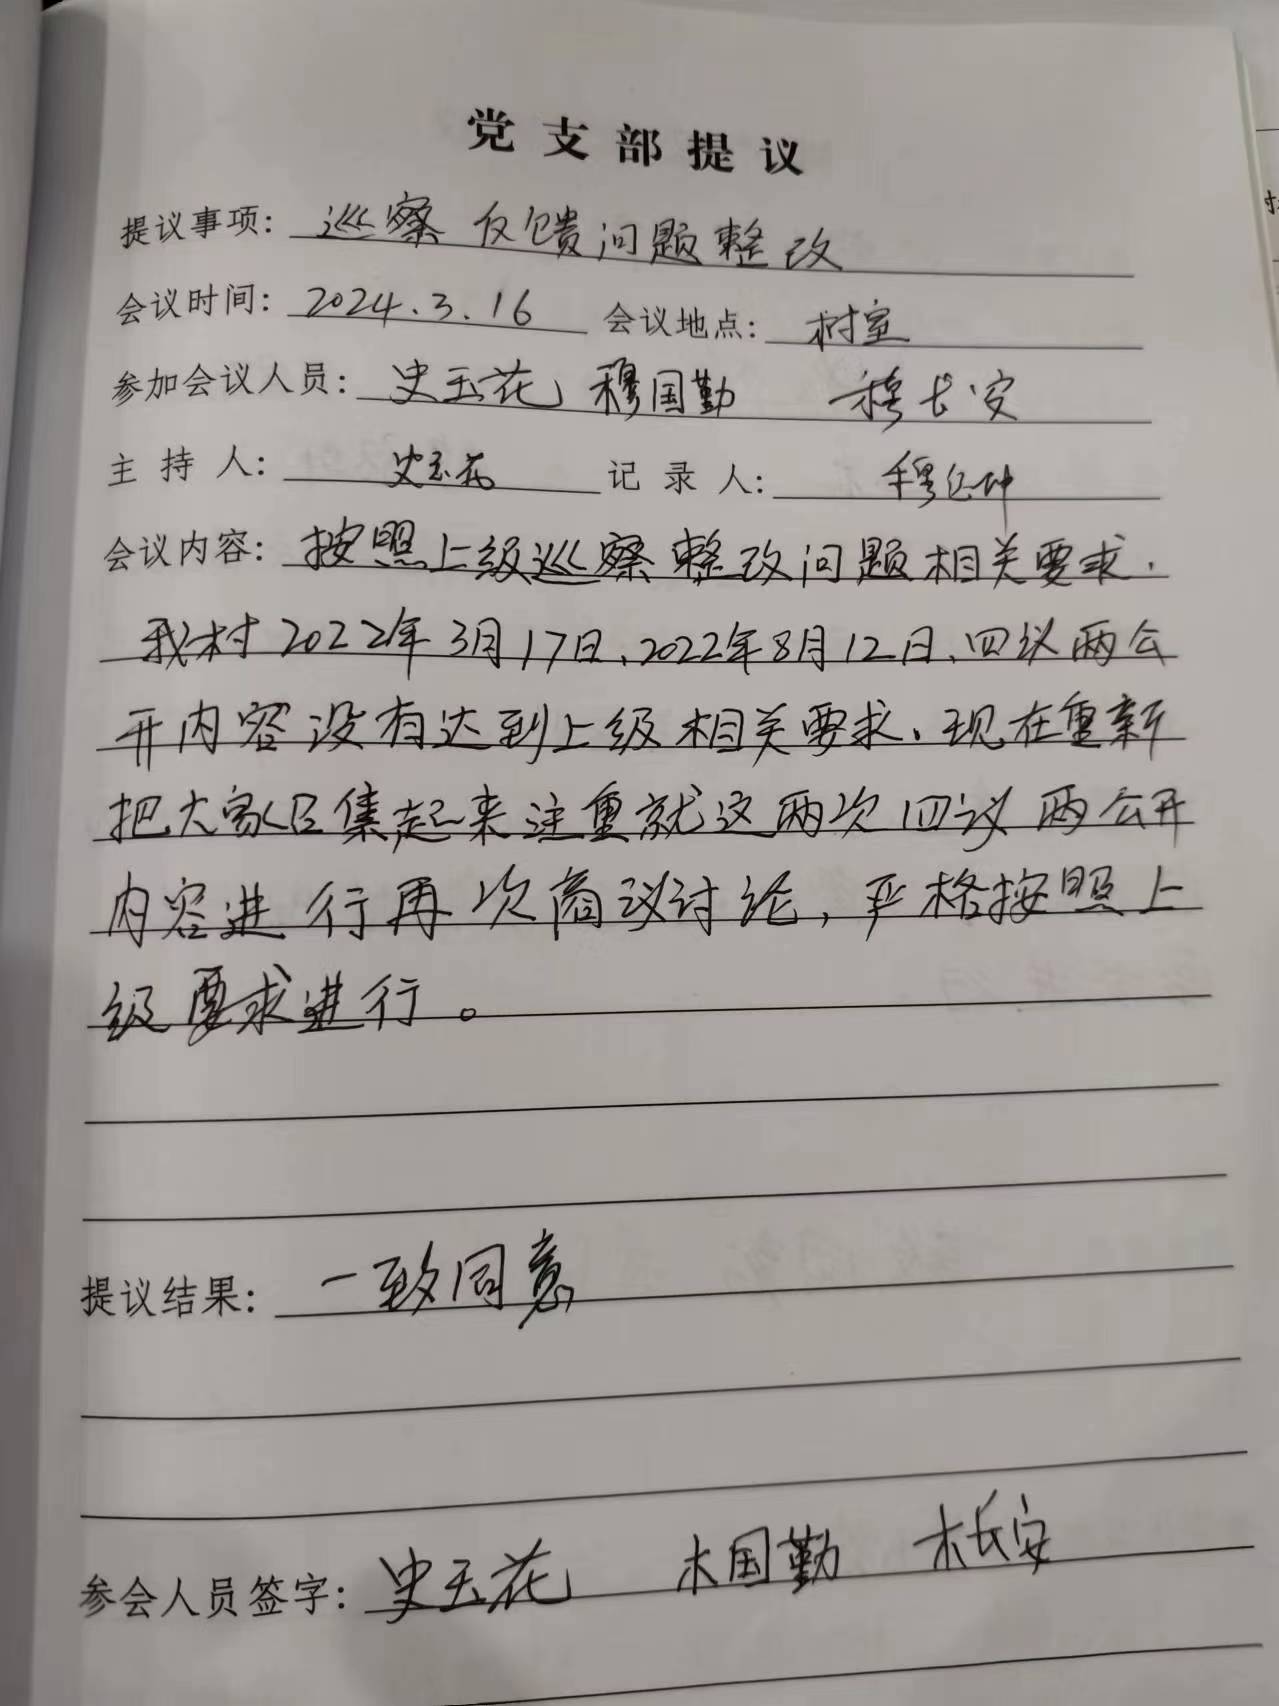 党支部提议
提议事项：巡察反馈问题整改
会议时间：2024.3.16 会议地点：村室
参加会议人员：史玉花 穆国勤 穆长安
主持人：史玉花 记录人：穆
会议内容：按照上级巡察整改问题相关要求，
我村2022年3月17日、2022年8月12日、四议两公
开内容没有达到上级相关要求、现在重新
把大家召集起来注重就这两次四议两公开
内容进行再次商议讨论，严格按照上
级要求进行。
提议结果：一致同意
参会人员签字：史玉花 木国勤 木长安